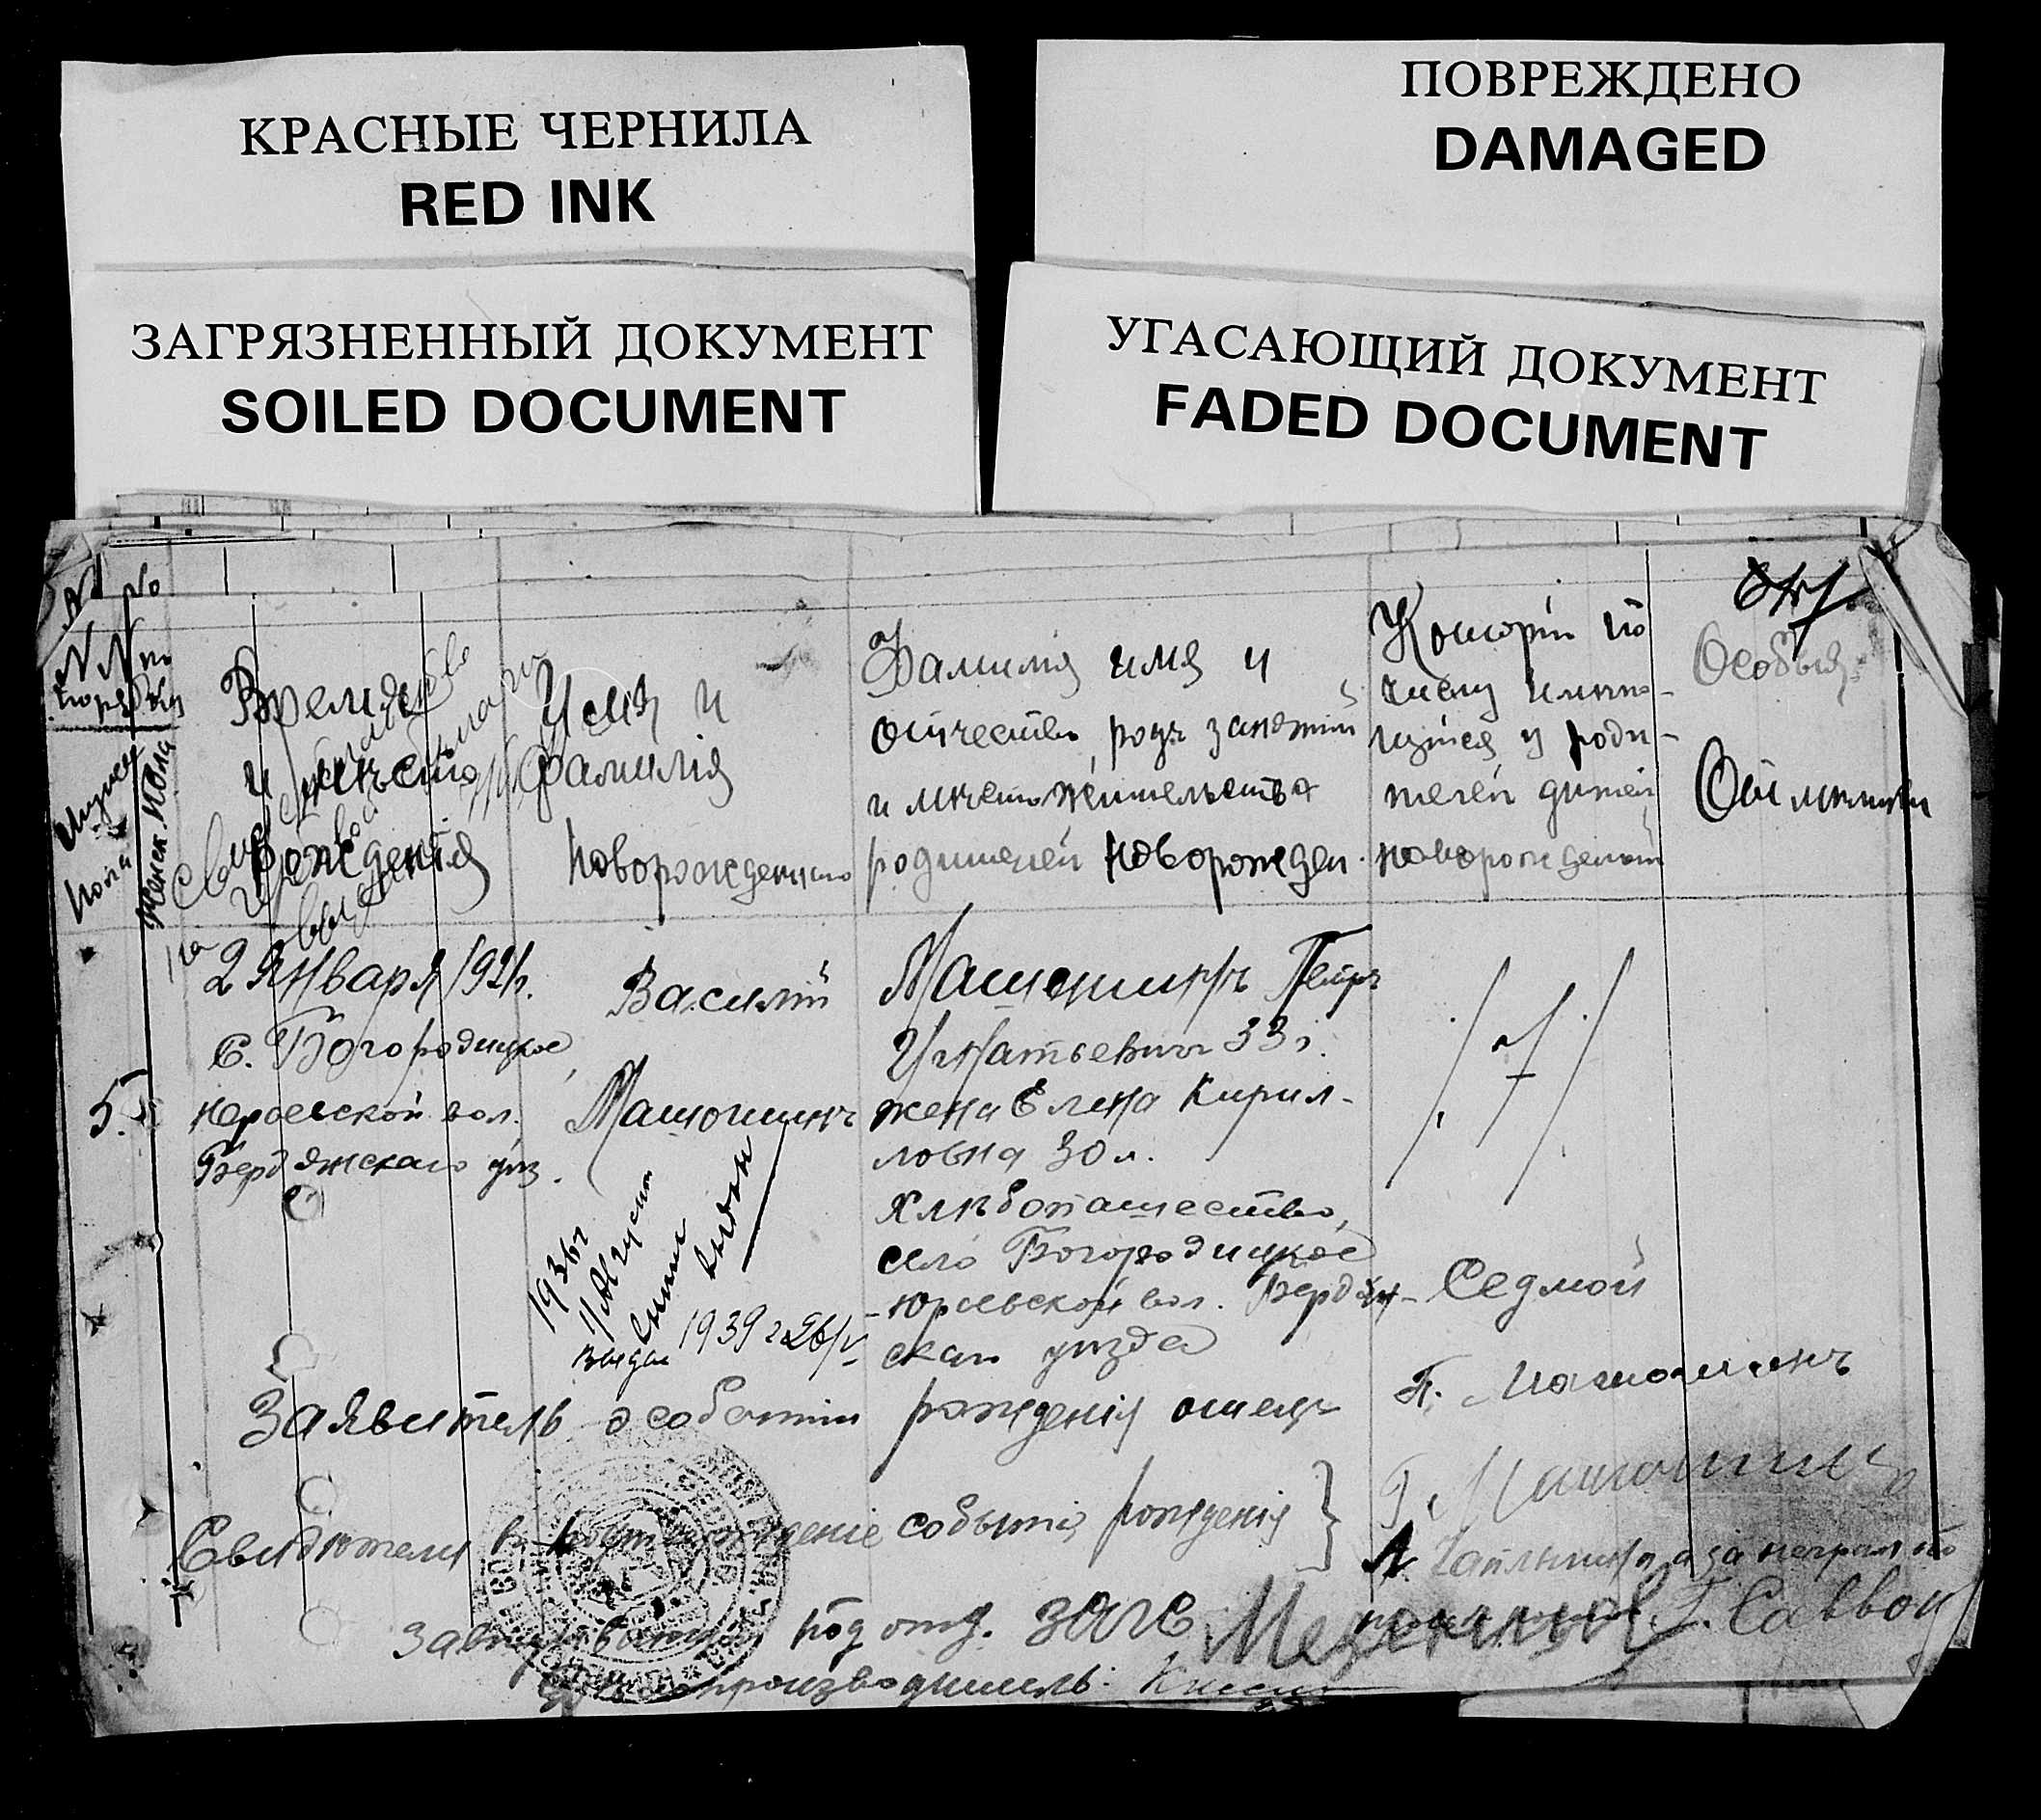 КРАСНЫЕ ЧЕРНИЛА
RED INK
ПОВРЕЖДЕНО
DAMAGED
ЗАГРЯЗНЕННЫЙ ДОКУМЕНТ
SOILED DOCUMENT
УГАСАЮЩИЙ ДОКУМЕНТ
FADED DOCUMENT
№ №
№№ по
порядку
Женск. пола
Время
и место
рожденія
Имя и
фамилія
новорожденнаго
Фамилія имя и
отчество, родъ занятій
и место жительства
родителей новорожден.
Который по
числу
у роди-
телей детей
новорожденный
Особыя
Отметки
5.
2 Января 1921г.
С. Богородицкое,
Юрьевской вол.
Бердянскаго уѣз.
Василій
Машошинъ
Машошинъ Петръ
Игнатьевичъ 33 г.
жена Елена Кирил-
ловна 30 л.
хлѣбопашество,
село Богородицкое
Юрьевской вол. Бердян-
скаго уѣзда
Седмой
1936г
11 Августа
выдан
1939 г
Заявитель о событіи рожденія отецъ
П. Машошинъ
Свидѣтели в подтвержденіе событія рожденія }
Г. Машошинъ
А. а за неграмотно
Г. Саввон
Завѣдывающій под отд. ЗАГС
Дѣлопроизводитель: